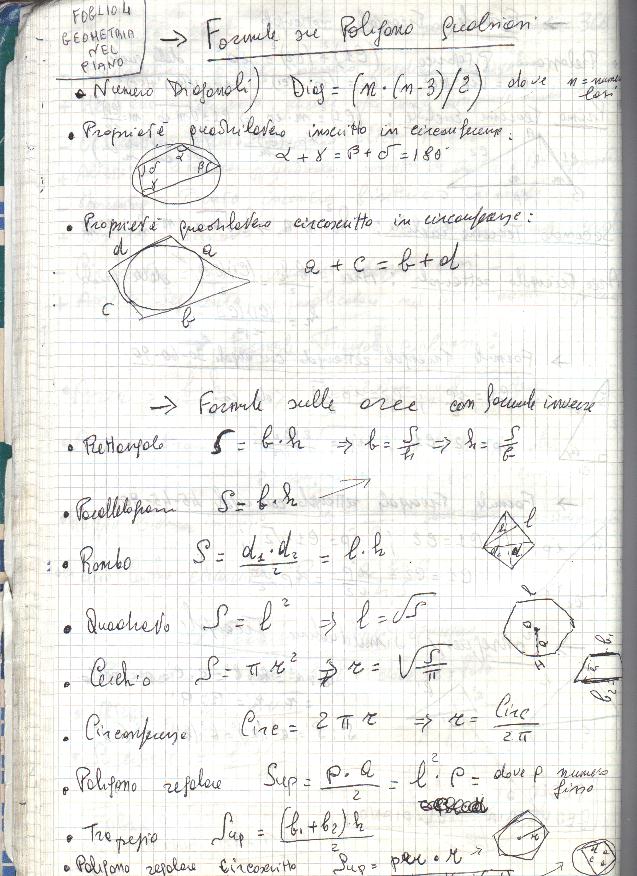 FOGLIO 4
GEOMETRIA
NEL
PIANO
→ Formule su Poligono Qualsiasi
• Numero Diagonali) Diag = (n·(n-3)/2) dove n = numero lati
• Proprietà quadrilatero inscritto in circonferenza:
α + γ = β + δ = 180°
α
δ
β
γ
• Proprietà quadrilatero circoscritto in circonferenza:
d
a
a + c = b + d
c
b
→ Formule sulle aree con formule inverse
• Rettangolo S = b·h ⇒ b = S/h ⇒ h = S/b
• Parallelogramma S = b·h
• Rombo S = d1·d2/2 = l·h
l
• Quadrato S = l² ⇒ l = √S
l
• Cerchio S = π r² ⇒ r = √S/π
b1
b2
• Circonferenza Circ = 2 π r ⇒ r = Circ/2π
• Poligono regolare Sup = p·a/2 = l²·ρ = dove ρ numero fisso
• Trapezio Sup = (b1+b2)h/2
• Poligono regolare circoscritto Sup = per·r